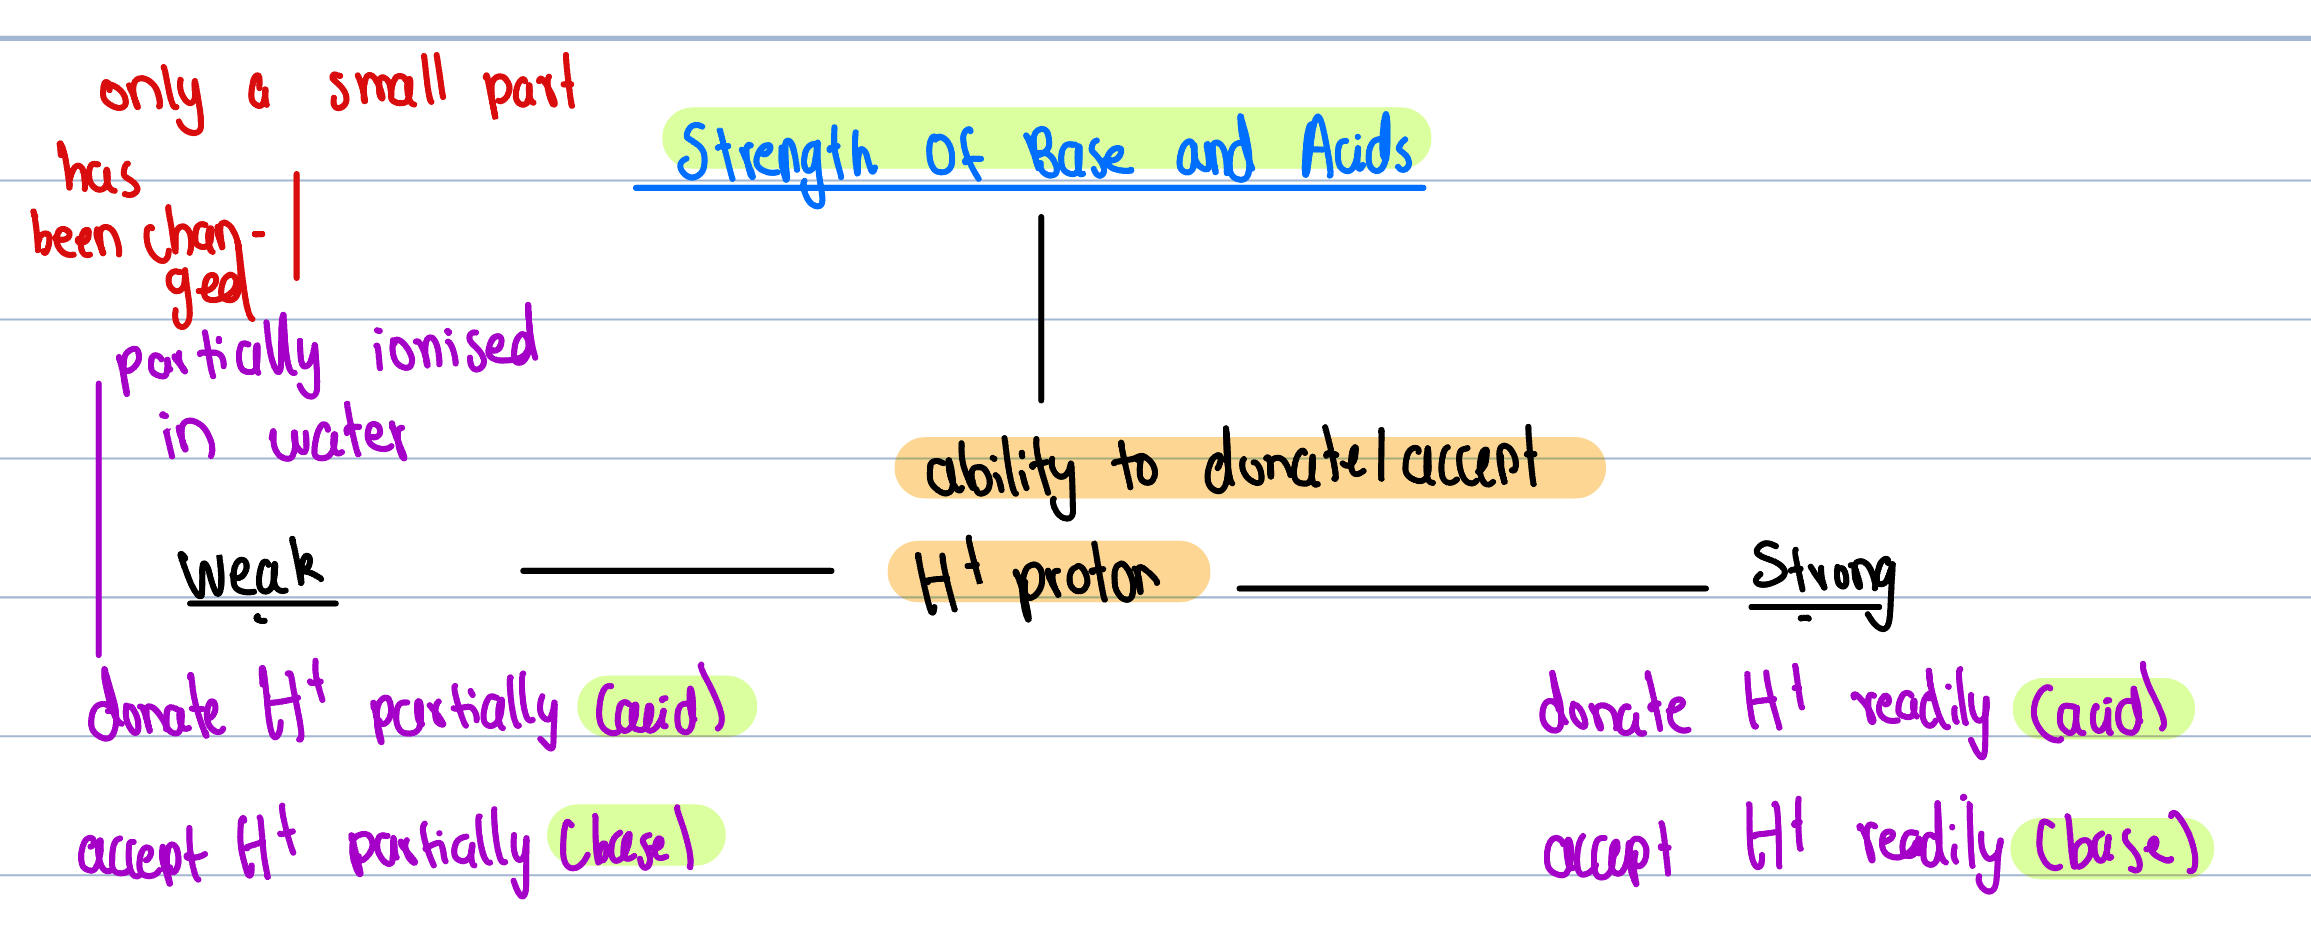 only a small part
has
been chan-
ged
Strength of Base and Acids
partially ionised
in water
ability to donate/accept
H+ proton
Weak
Strong
donate H+ partially (acid)
accept H+ partially (base)
donate H+ readily (acid)
accept H+ readily (base)